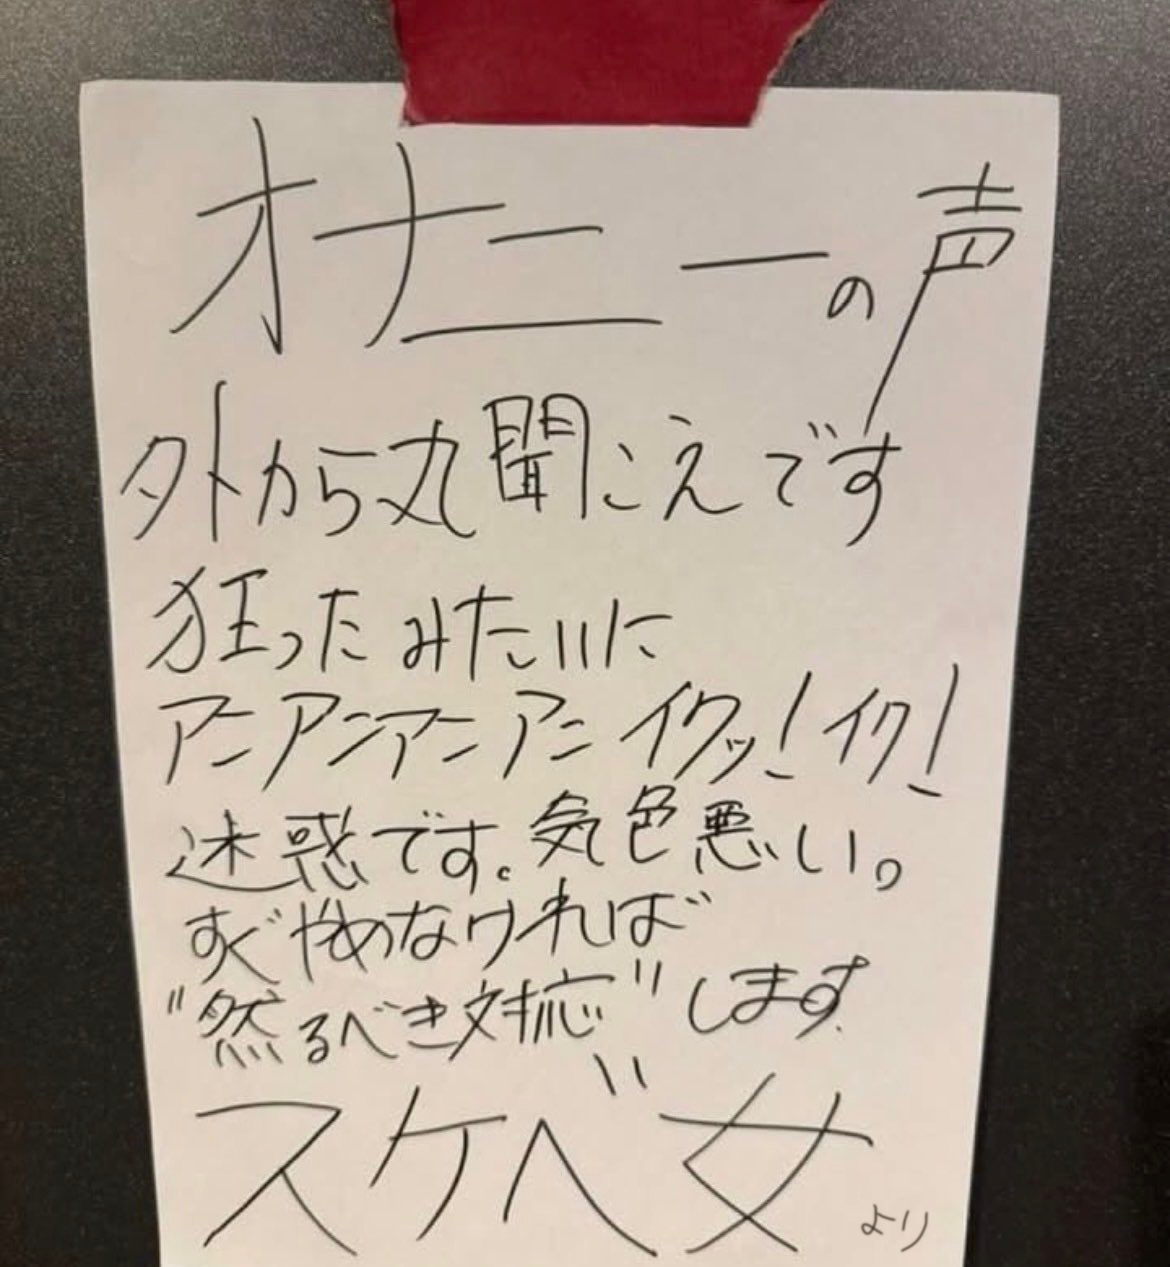 オナニーの声
外から丸聞こえです
狂ったみたいに
アンアンアンアンイクッ!イク!
迷惑です。気色悪い。
すぐやめなければ
"然るべき対応"します
スケベ女より